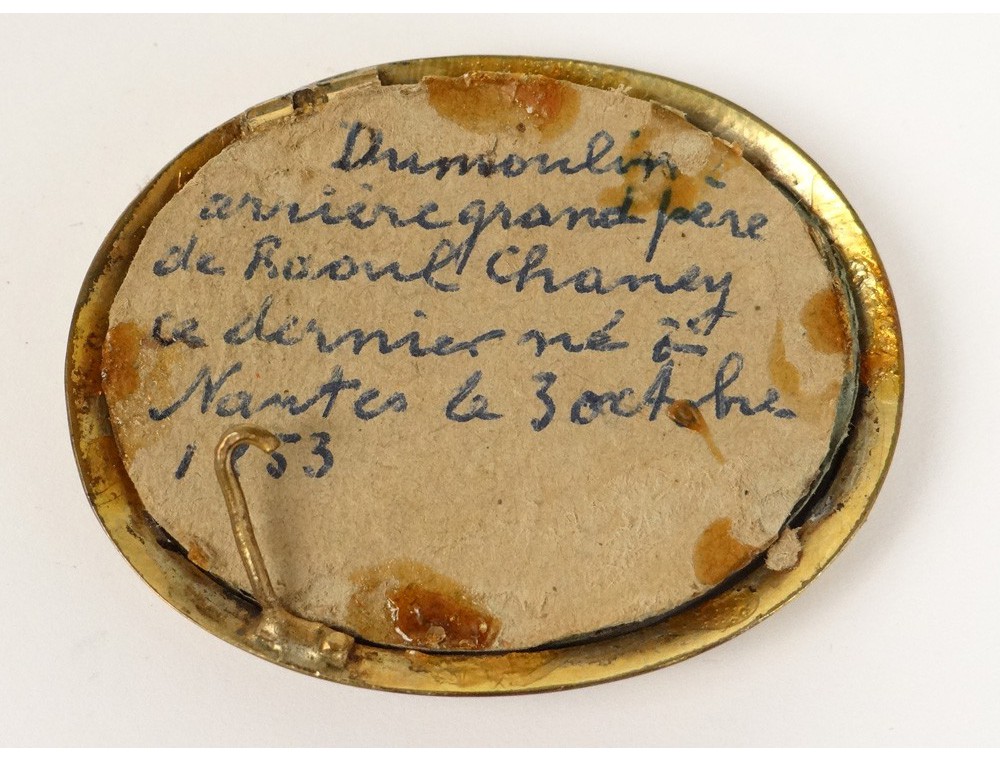 Dumoulin
arrière grand père
de Raoul Chaney
ce dernier né à
Nantes le 3 octobre
53